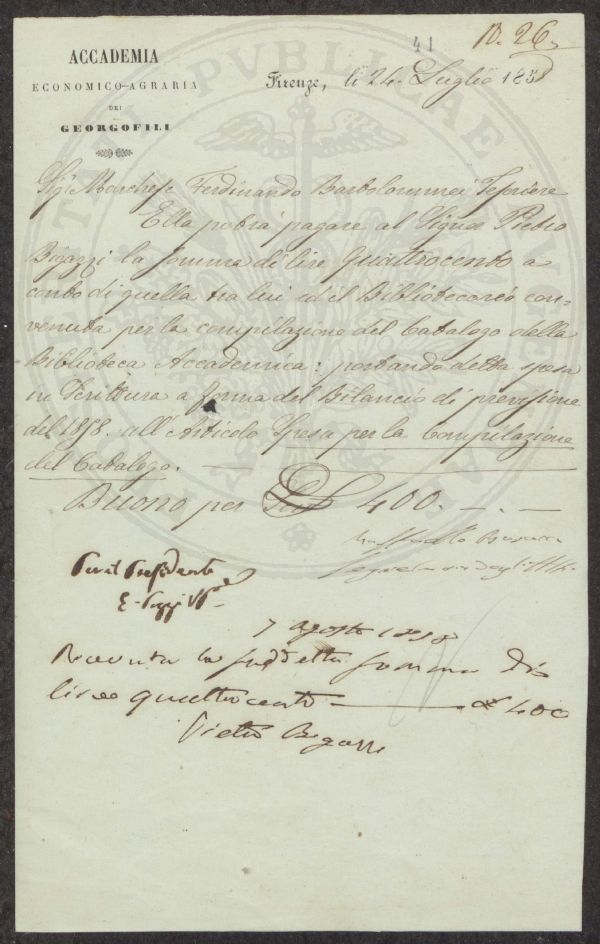 41
N. 26
ACCADEMIA
ECONOMICO-AGRARIA
DEI
GEORGOFILI
Firenze, li 24. Luglio 1858
Sigr. Marchese Ferdinando Bartolommei Tesoriere
Ella potrà pagare al Signor Pietro
Bigazzi la somma di lire Quattrocento a
conto di quella tra lui ed il Bibliotecario con-
venuta per la compilazione del Catalogo della
Biblioteca Accademica: portando detta spesa
in Scrittura a forma del Bilancio di previsione
del 1858. all'Articolo Spesa per la Compilazione
del Catalogo.
Buono per 400. -. -
Segretario degli Atti
Per il Presidente
E. Poggi
7 agosto 1858
Ricevuta la suddetta somma di
lire quattrocento 400
Pietro Bigazzi